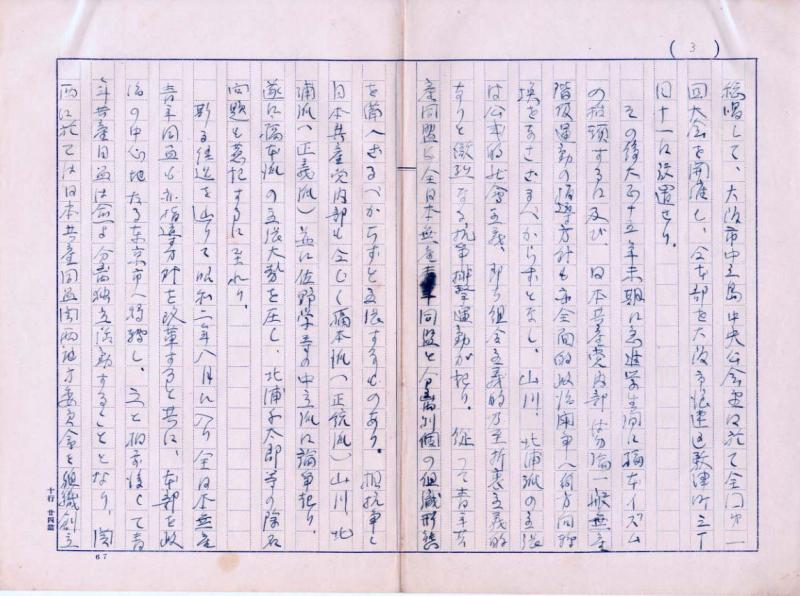 (3)
稱して、大阪市中之島中央公会堂に於て全国第一
回大会を開催し、全本部を大阪市浪速区敷津町三丁
目十一に設置せり。
その後大正十五年末期に急進学生間に福本イズム
の擡頭するに及び、日本共産党内部は勿論一般無産
階級運動の指導方針も亦全面的政治闘争へ方向転
換をなさざるべからずとなし、山川、北浦派の主張
は公式的社会主義、即ち組合主義的乃至折衷主義的
なりと激烈なる抗争排撃運動が起り。従つて青年共
産同盟と全日本無産青年同盟と全然別個の組織形態
を備へざるべからずと主張するものあり。抵抗争し
日本共産党内部も全じく福本派(正統派)山川、北
浦派(正義派)並に佐野学等の中立派に論争起り。
遂に福本派の主張大勢を圧し、北浦千太郎等の除名
問題も惹起するに至れり。
斯る経過を辿りて昭和二年八月に入り全日本無産
青年同盟も亦指導方針を改革すると共に、本部を政
治の中心地たる東京市へ移転し、之と相前後して青
年共産同盟は愈よ分離独立活動することとなり、関
西に於ては日本共産同盟関西地方委員会を組織創立
十行 廿四詰
67